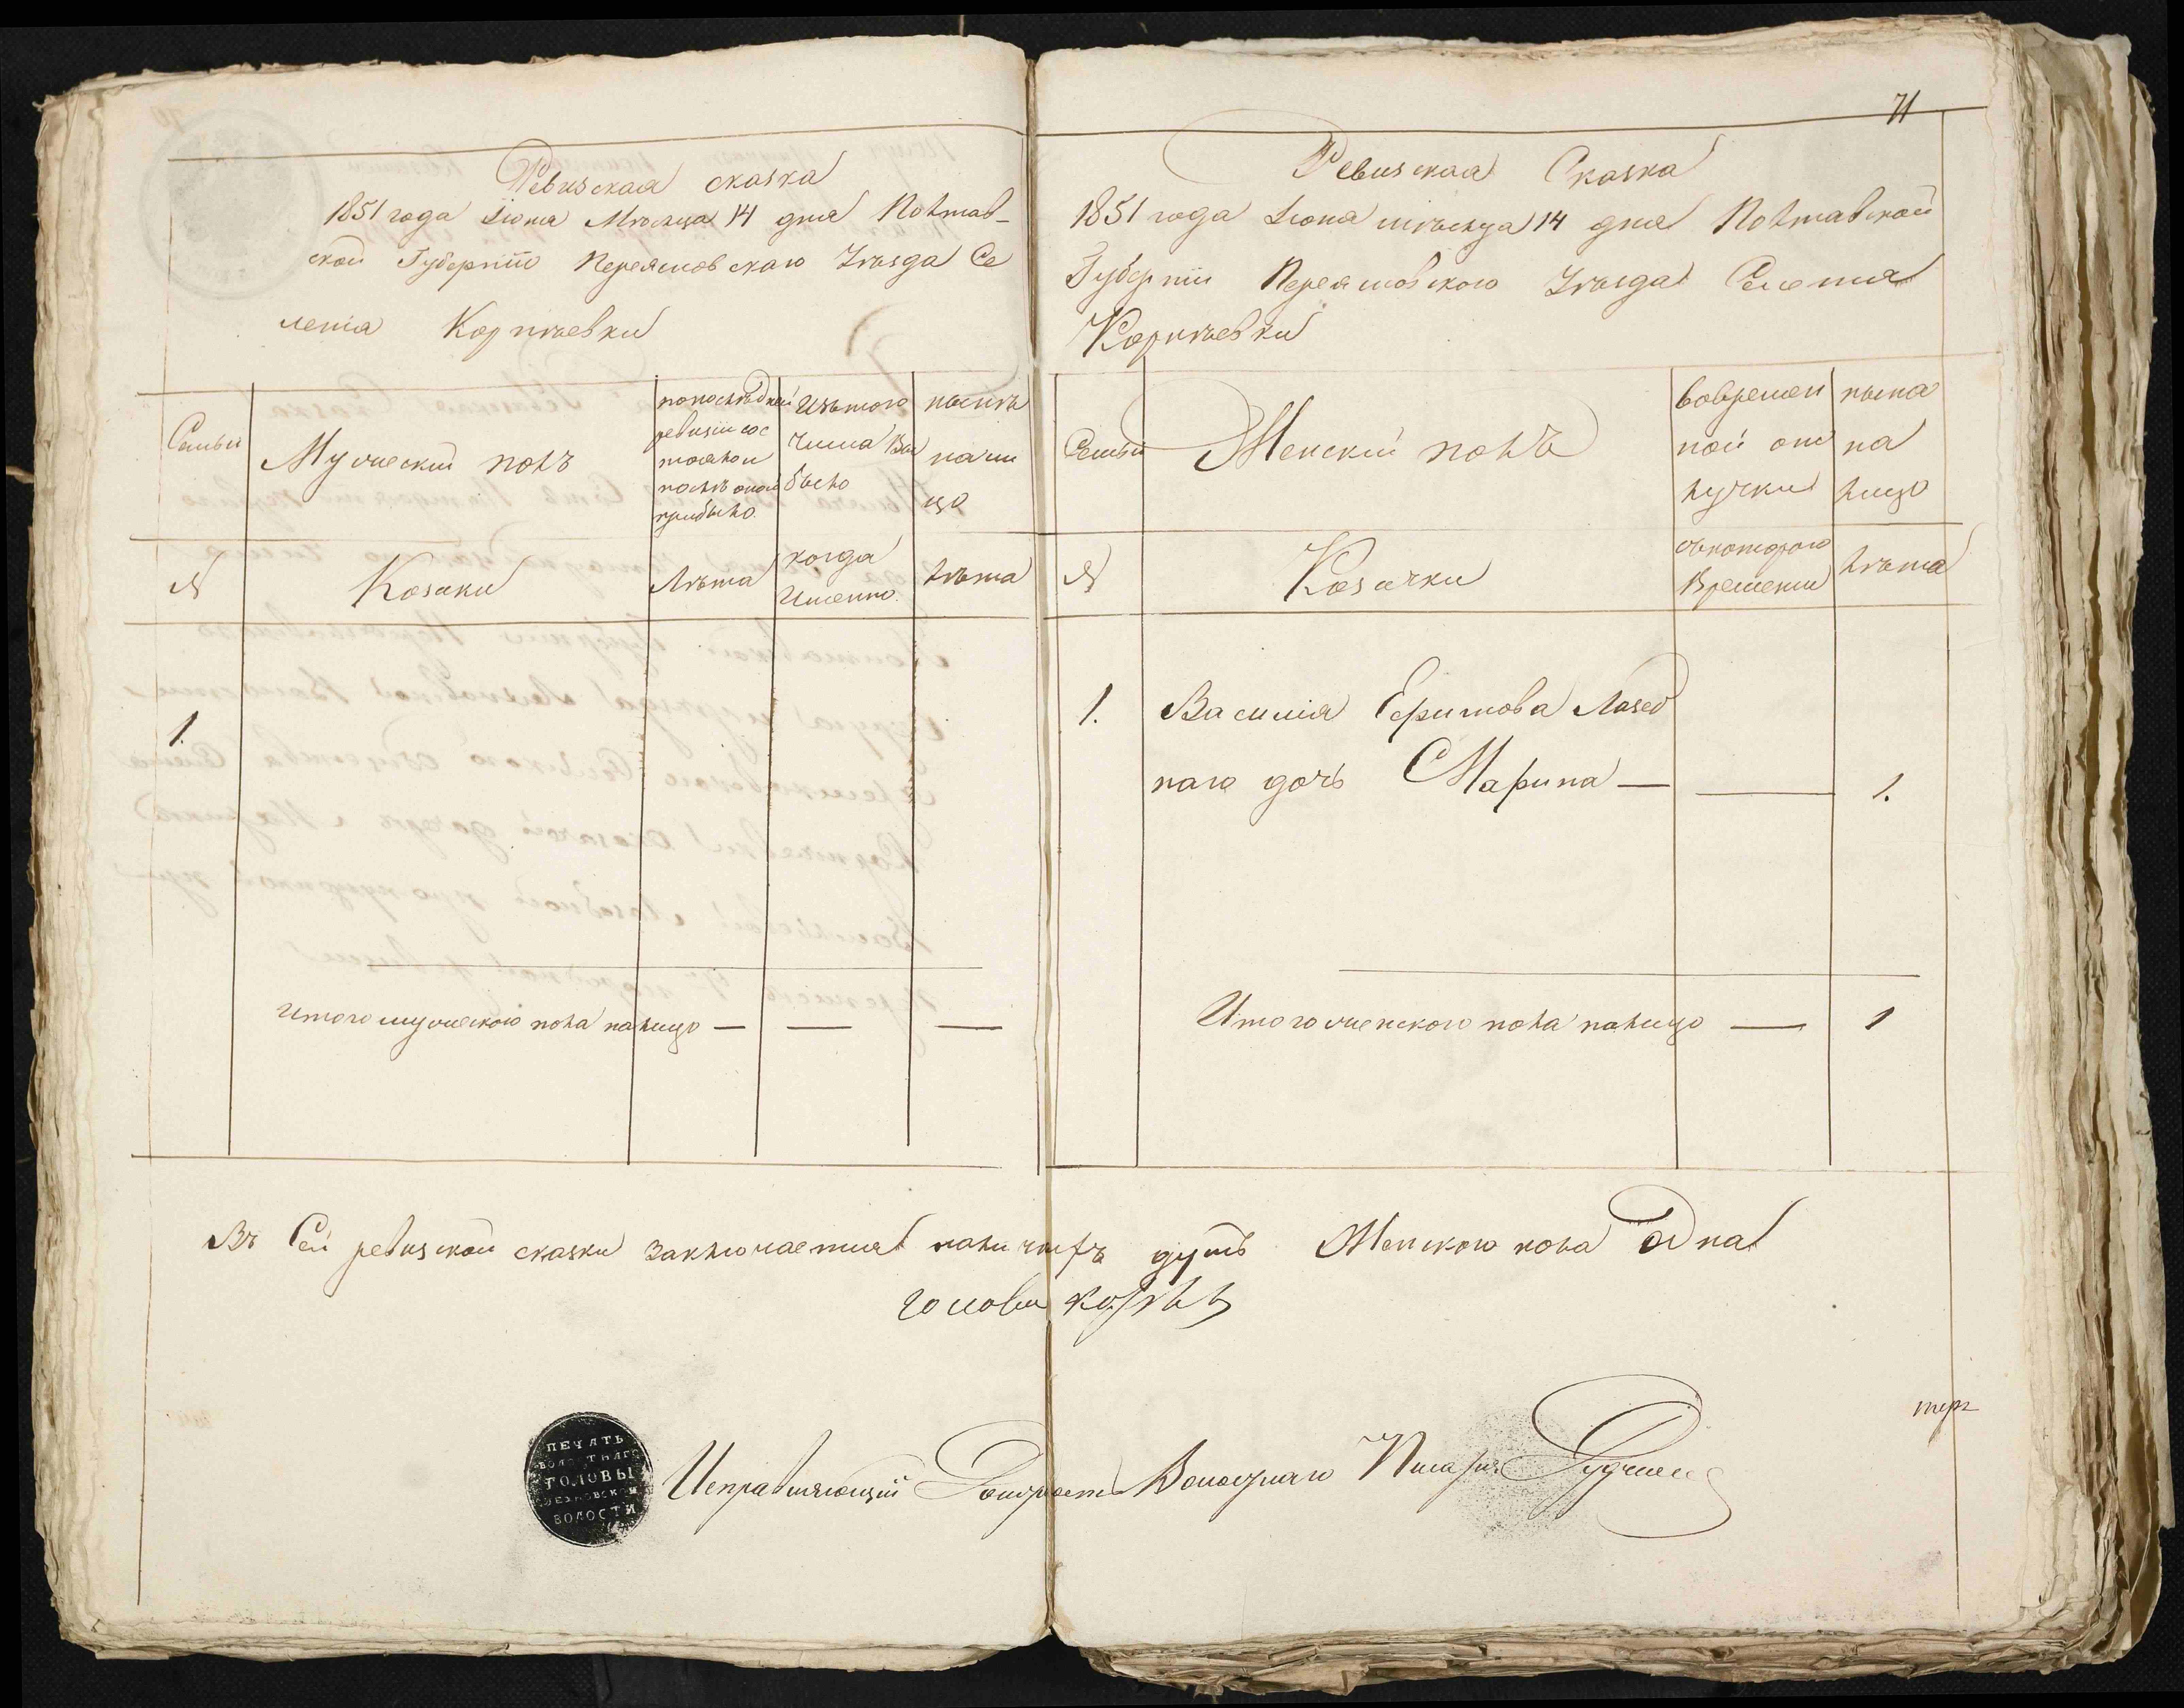 Ревизская сказка
1851 года Іюня Мѣсяца 14 дня Полтав-
ской Губерніи Переяславскаго Уѣзда Се
ленія Корнѣевки
Семьи
Мужескій полъ
попослѣдней
ревизіи сос
тояло и
послѣ оной
прибыло.
Изътого
числа Вы
было
нынѣ
на ли
цо
№
Козаки
Лѣта
когда
Именно.
лѣта
1.
Итого мужескаго пола налицо — — —
71
Ревизская Сказка
1851 года Іюня мѣсяца 14 дня Полтавской
Губерніи Переяславскаго Уѣзда Селенія
Корнѣевки
Семьи
Женскій полъ
вовремен
ной от
лучки
ныне
на
лицо
№
Козачки
съкотораго
Времени
лѣта
1. Василія Ефимова Лазеб
наго дочь Марина — — 1.
Итого женскаго пола налицо — 1
Въ Сей ревизской сказки заключается наличихъ душъ Женскаго пола Одна
голова
ПЕЧАТЬ
ВОЛОСТНАГО
ГОЛОВЫ
ВОЛОСТИ
Исправляющій Должность Волостнаго Писаря